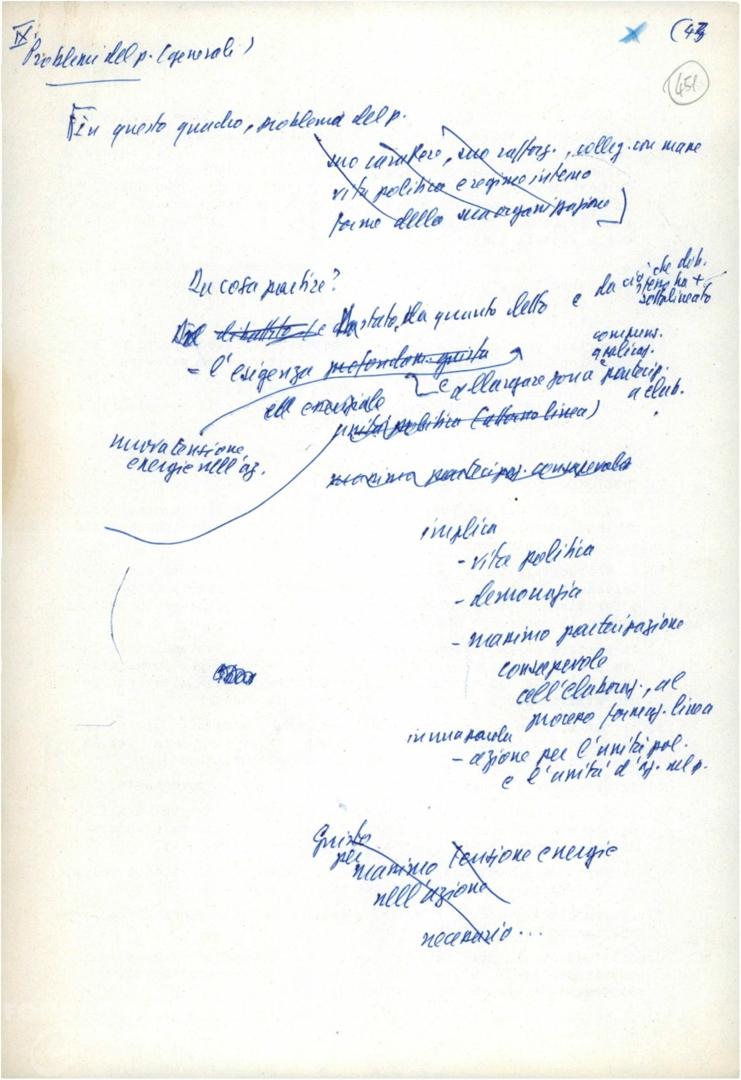 IX.
(43
451
Problemi del p. (generali)
In questo quadro, problema del p.
suo carattere, suo rafforz., colleg. con masse
vita politica e regime interno
forme della sua organizzazione]
Da cosa partire?
dibattito e Da stato, da quanto detto e da ciò che dib.
ha +
sottolineato
- l'esigenza profondam. giusta
compens.
e allargare zona partecip.
a elab.
essenziale
unità politica (attorno linea)
nuova tensione
energie nell'az.
massima partecipaz. consapevole
implica
- vita politica
- democrazia
- massima partecipazione
consapevole
all'elaboraz., al
processo formaz. linea
in una parola
- azione per l'unità pol.
e l'unità d'az. nel p.
Giusta
per
massima tensione energie
nell'azione
necessario...